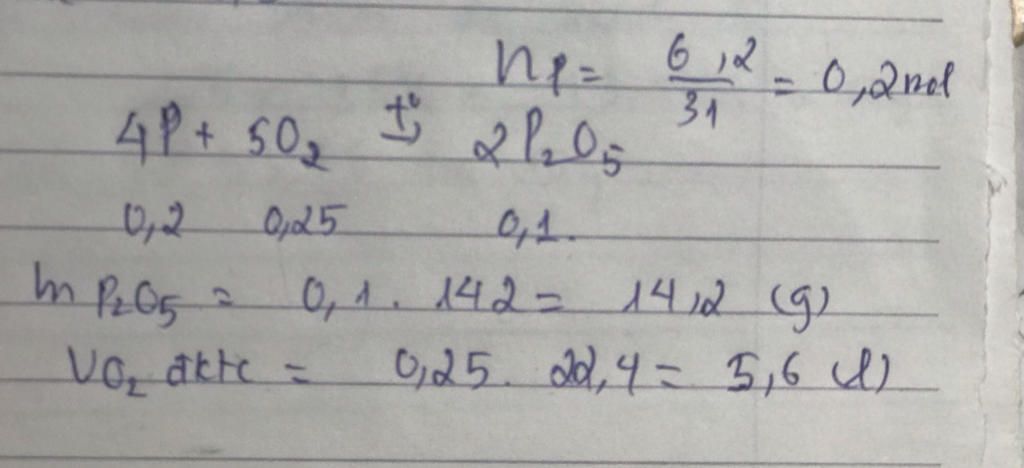 nP = 6,2/31 = 0,2 mol
4P + 5O₂ t°→ 2P₂O₅
0,2 0,25 0,1.
mP₂O₅ = 0,1 . 142 = 14,2 (g)
VO₂ đktc = 0,25 . 22,4 = 5,6 (l)